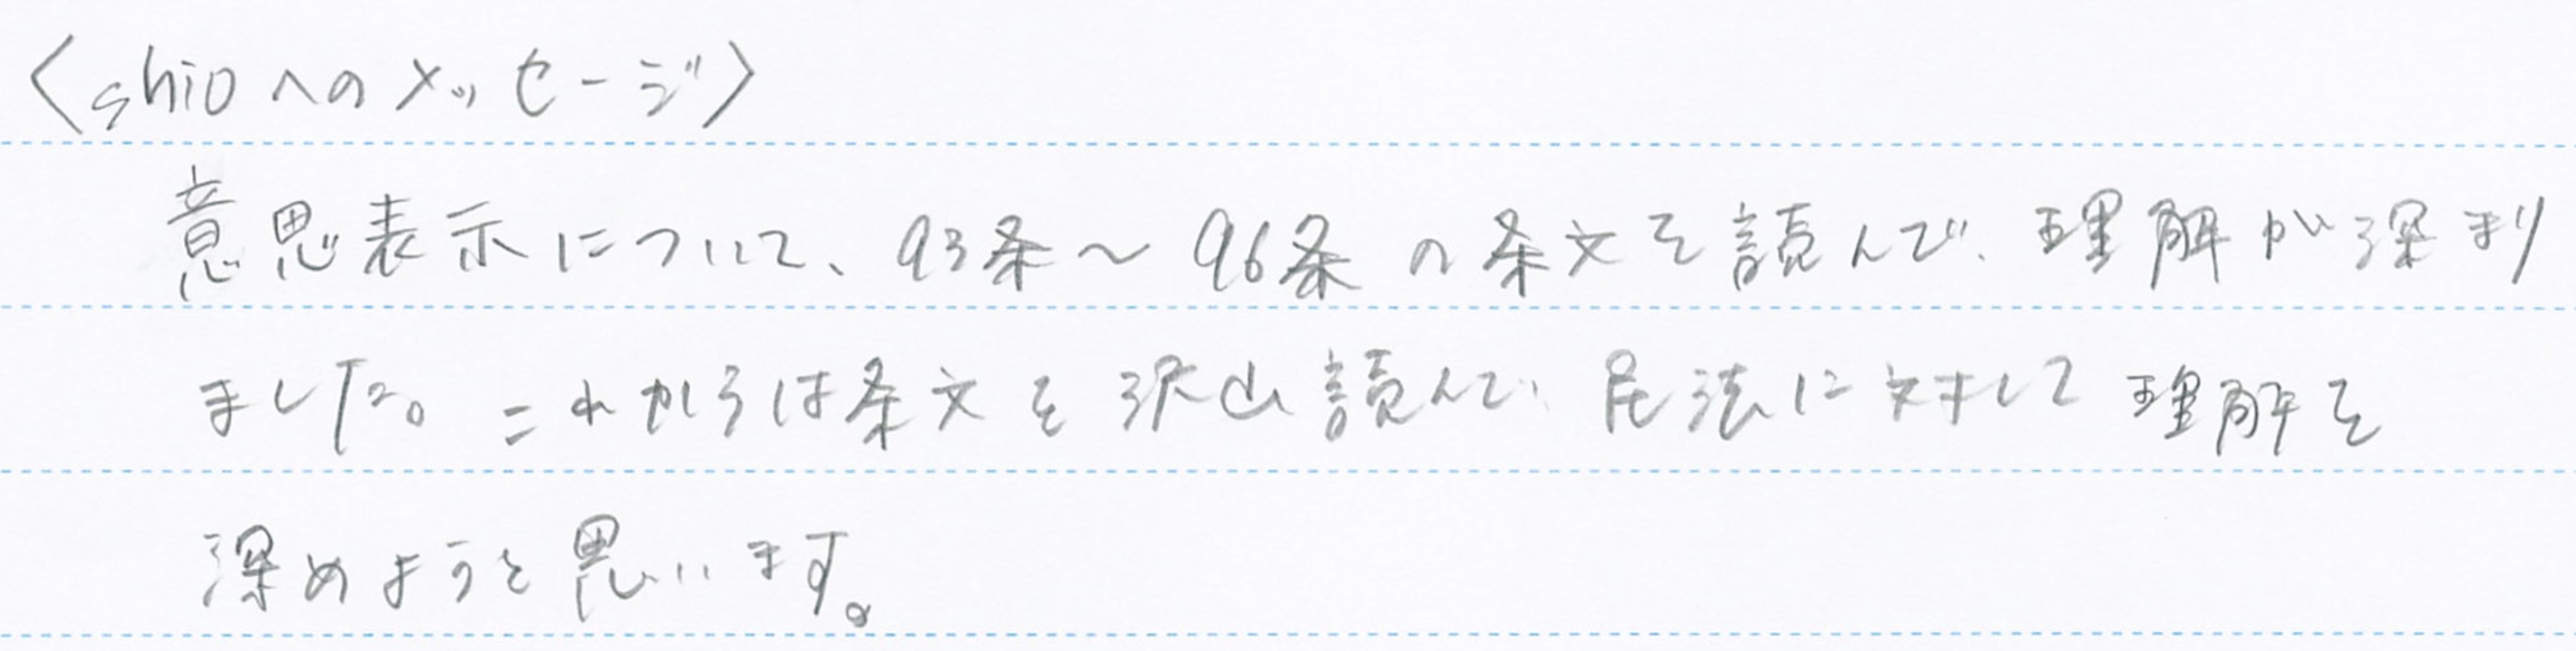 〈shioへのメッセージ〉
意思表示について、93条～96条の条文を読んで、理解が深まり
ました。これからは条文を沢山読んで、民法に対して理解を
深めようと思います。